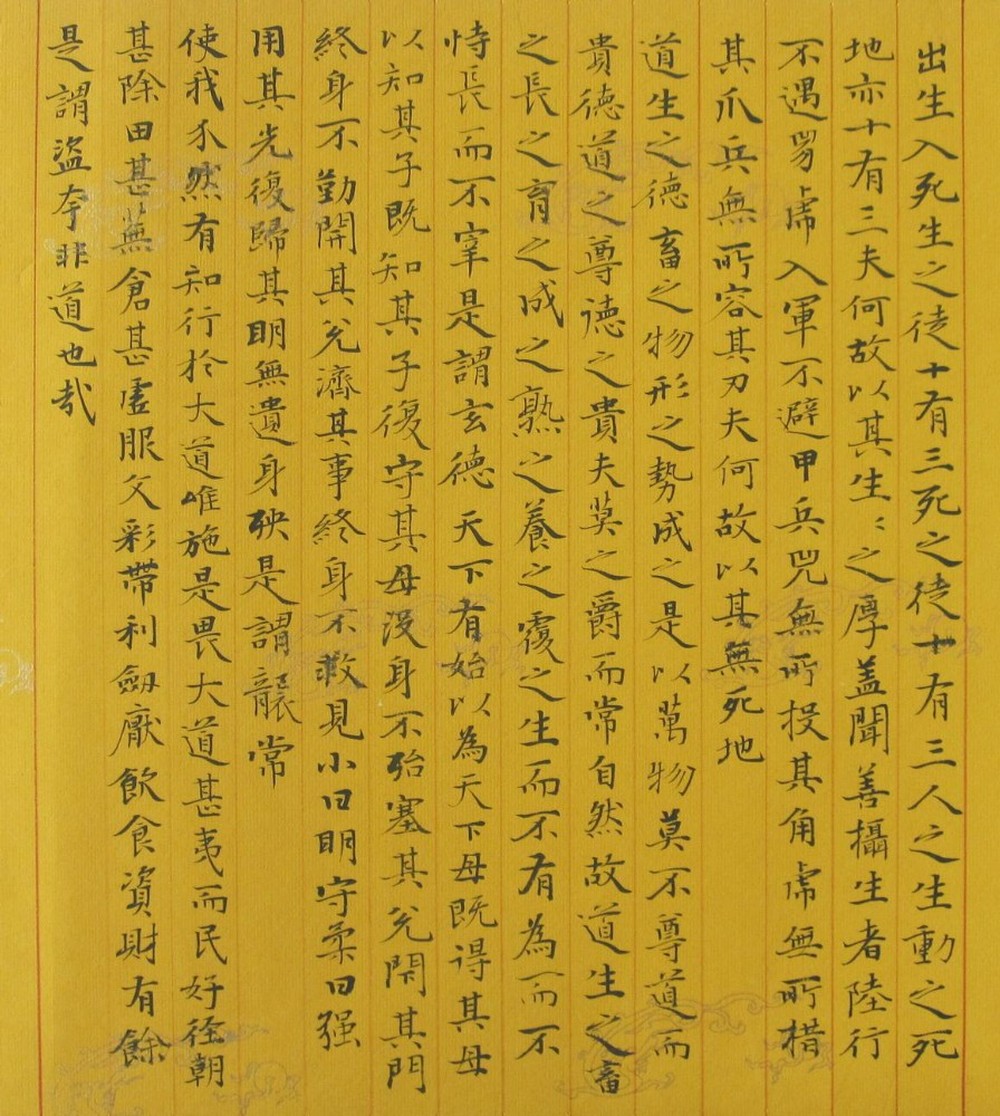 出生入死生之徒十有三死之徒十有三人之生動之死
地亦十有三夫何故以其生〻之厚盖聞善攝生者陸行
不遇兕虎入軍不避甲兵兕無所投其角虎無所措
其爪兵無所容其刃夫何故以其無死地
道生之德畜之物形之勢成之是以萬物莫不尊道而
貴德道之尊德之貴夫莫之爵而常自然故道生之畜
之長之育之成之熟之養之覆之生而不有為而不
恃長而不宰是謂玄德天下有始以為天下母既得其母
以知其子既知其子復守其母没身不殆塞其兌閉其門
終身不勤開其兌濟其事終身不救見小曰明守柔曰强
用其光復歸其明無遺身殃是謂襲常
使我介然有知行於大道唯施是畏大道甚夷而民好徑朝
甚除田甚蕪倉甚虛服文彩帶利劔厭飲食資財有餘
是謂盜夸非道也哉